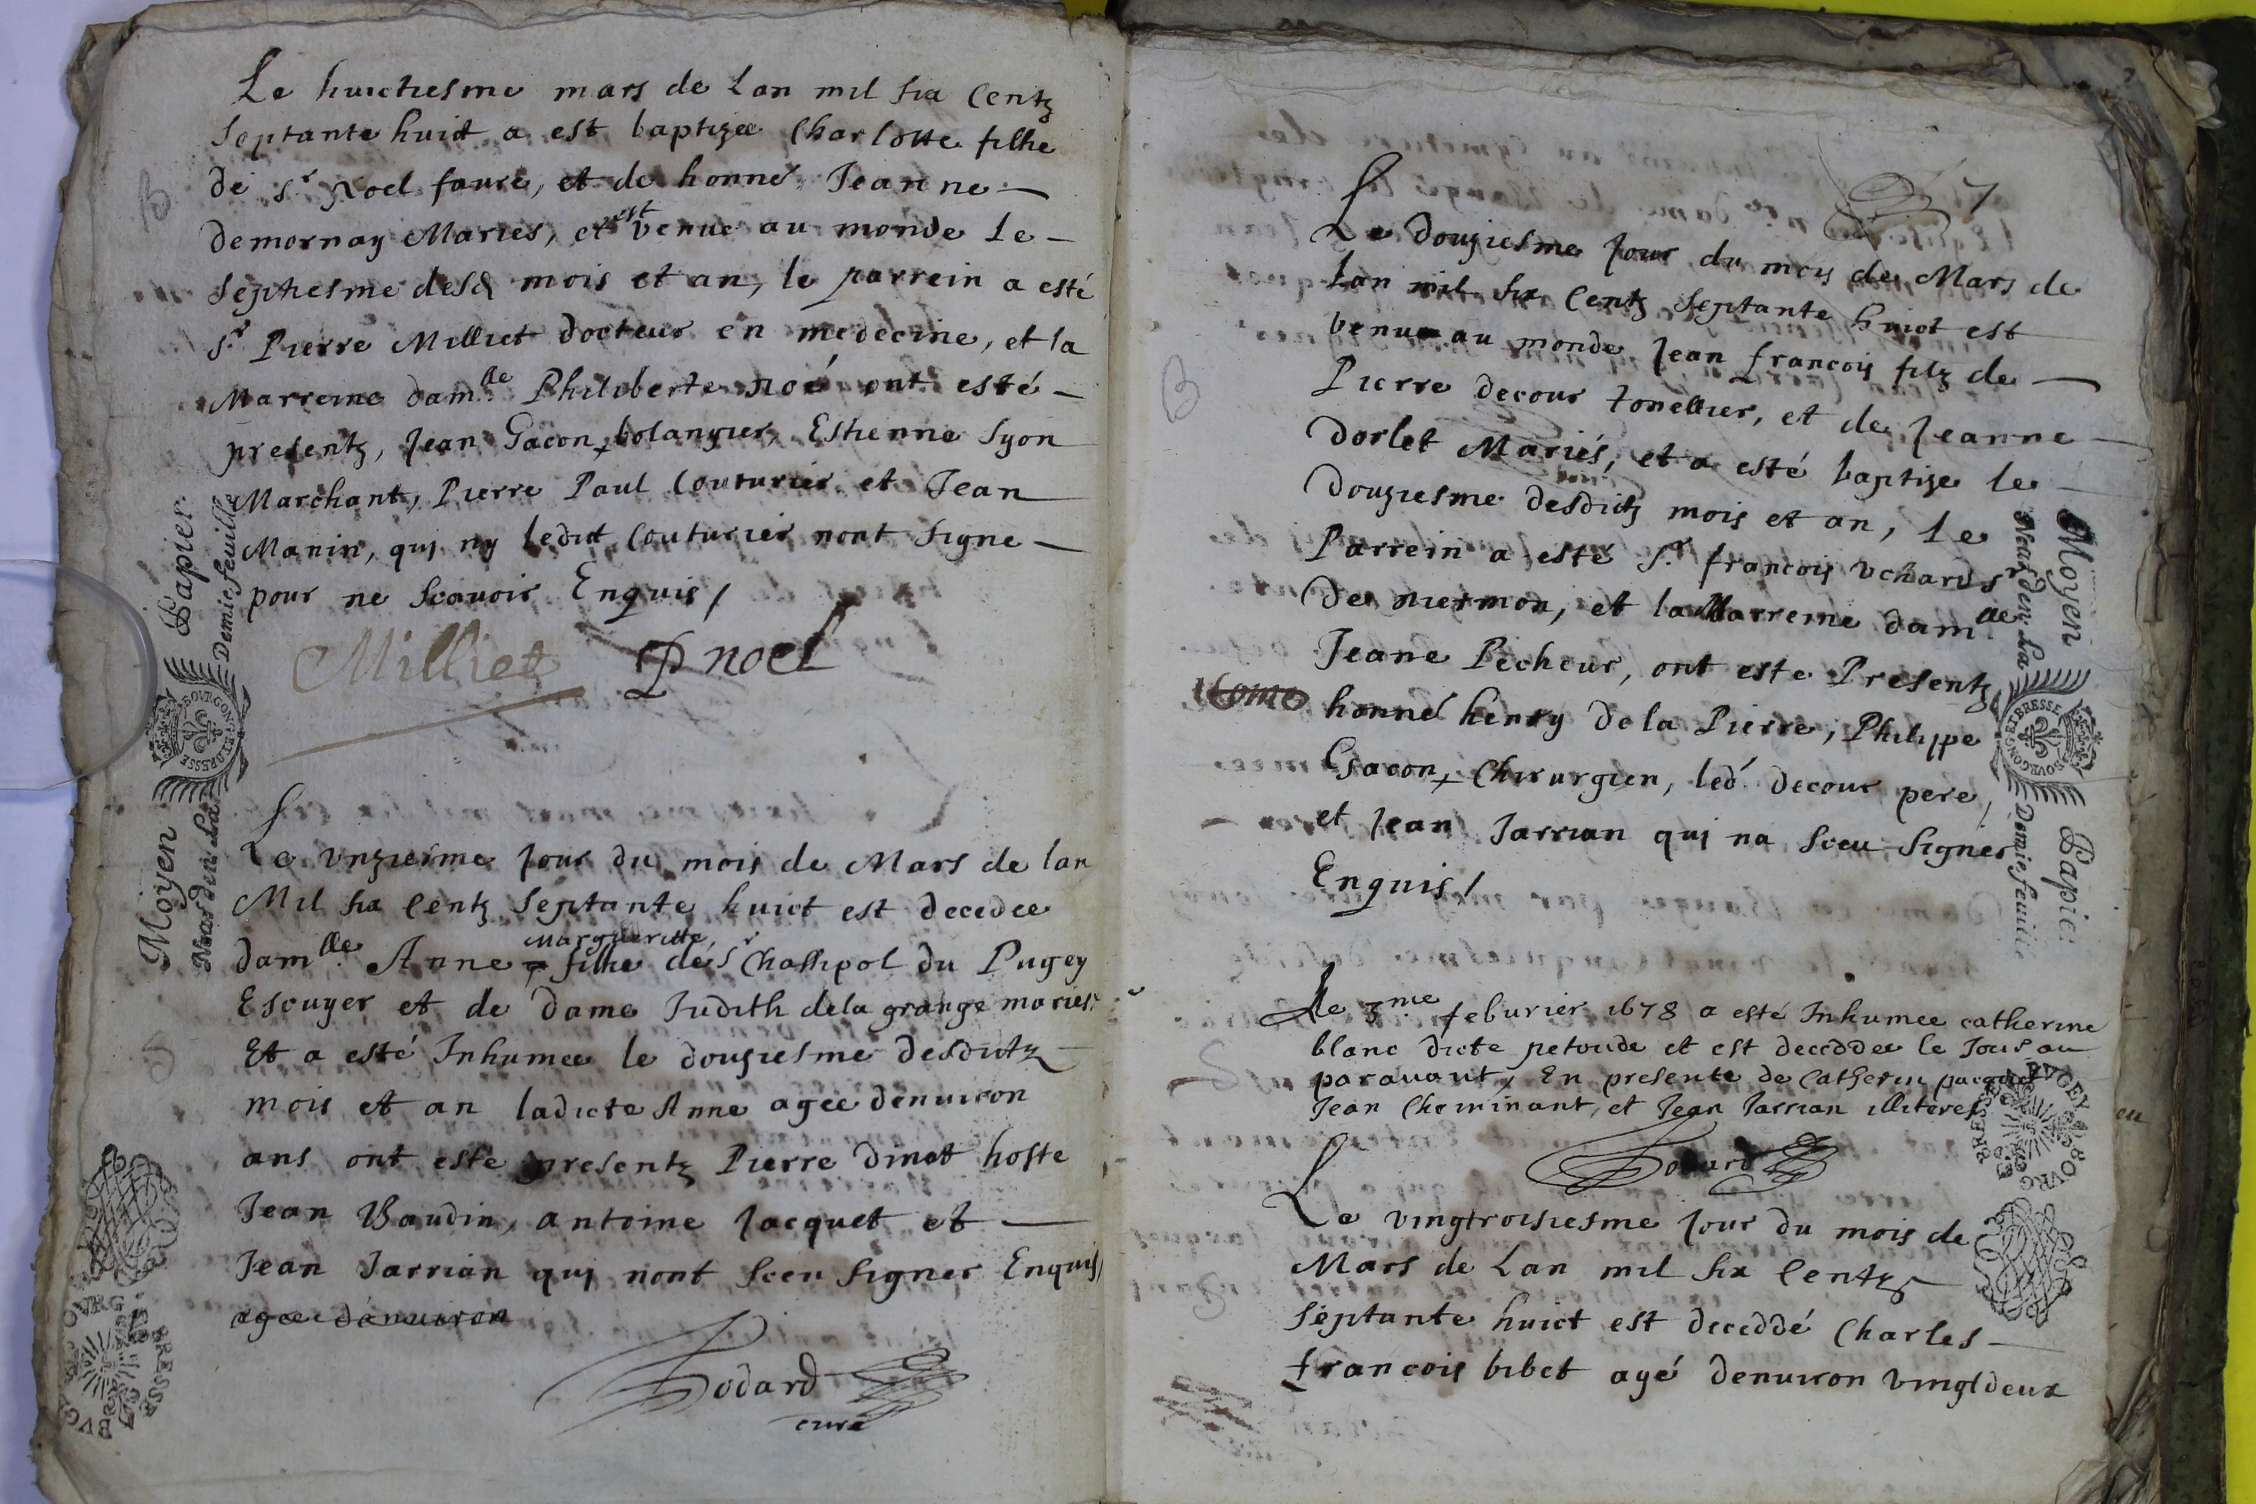 Le huictiesme mars de Lan mil six Centz
Septante huict a est baptizee Charlotte filhe
de Sr Noel faure, et de honne Jeanne
demornay Maries, et est venue au monde Le
Septiesme desd mois et an, le parrein a esté
Sr Pierre Milliet docteur en medecine, et la
Marreine damlle Philiberte Noé ont esté
presentz, Jean Gacon bolangier, Estienne Syon
Marchant, Pierre Paul Couturier et Jean
Manin, qui ny ledict Couturier nont signe
pour ne scavoir Enquis /
Milliet P noel
B
Moyen Papier
Neuf den. La Demie feuille
BOVRGONG ET BRESSE
Le unziesme Jour du mois de Mars de lan
Mil six Centz Septante huict est decedee
Margueritte
damlle Anne filhe de Sr Challipol du Pugey
Escuyer et de dame Judith dela grange maries
Et a esté Inhumee le douziesme desdictz
mois et an ladicte Anne agee denuiron
ans ont este presentz Pierre dinet hoste
Jean Baudin, antoine Jacquet et
Jean Jarrian qui nont sceu signer Enquis /
agee denuiron
Bodard
curé
S
BRESSE BVGEY
7
Le douziesme Jour du mois de Mars de
Lan mil six Centz Septante huict est
venu au monde Jean francois filz de
Pierre decour tonellier, et de Jeanne
dorlet Mariés, et a esté baptize le
douziesme desdictz mois et an, Le
Parrein a esté Sr francois uchard Sr
De niermon, et la Marreine damlle
Jeane Pecheur, ont este Presentz
honné henry De la Pierre, Philippe
Gacon, Chirurgien, led decour pere,
et Jean Jarrian qui na sceu signer
Enquis /
B
Moyen Papier
Neuf den. La Demie feuille
BOVRGONG ET BRESSE
Le 3me feburier 1678 a esté Inhumee catherine
blanc dicte petoude et est deceddee le Jour au
parauant, En presente de Catherin
Jean Cheminant, et Jean Jarrian illiteres
Bodard
S
BRESSE BVGEY BOVRG
Le vingtroisiesme Jour du mois de
Mars de Lan mil six Centz
septante huict est deceddé Charles
francois bibet agé denuiron vingtdeux